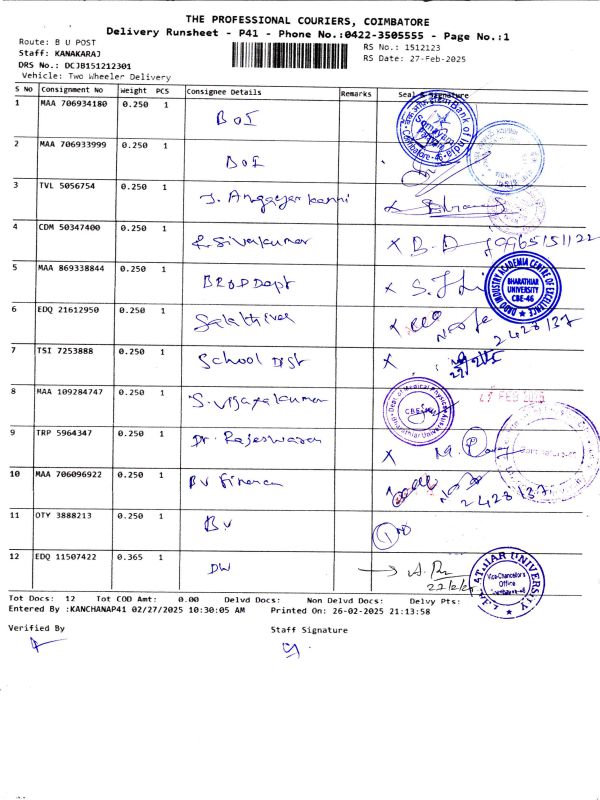 THE PROFESSIONAL COURIERS, COIMBATORE
Delivery Runsheet - P41 - Phone No.:0422-3505555 - Page No.:1
Route: B U POST
RS No.: 1512123
Staff: KANAKARAJ
RS Date: 27-Feb-2025
DRS No.: DCJB151212301
Vehicle: Two Wheeler Delivery
S No Consignment No Weight PCS Consignee Details Remarks Seal & Signature
1 MAA 706934180 0.250 1 BOI
2 MAA 706933999 0.250 1 BOI
3 TVL 5056754 0.250 1 J. Angayarkanni
4 CDM 50347400 0.250 1 R. Sivakumar X B. D 9965151122
5 MAA 869338844 0.250 1 X S.
BHARATHIAR UNIVERSITY CBE-46
DRDO INDUSTRY ACADEMIA CENTRE OF EXCELLENCE
6 EDQ 21612950 0.250 1 Sakthivel 2428137
7 TSI 7253888 0.250 1 School Dist X
8 MAA 109284747 0.250 1 S. Vijayakumar
Dept of Medical Physics Bharathiar University CBE
27 FEB 2025
9 TRP 5964347 0.250 1 Dr. Rajeswaran X
10 MAA 706096922 0.250 1 BU Finance 2428137
11 OTY 3888213 0.250 1 BU
12 EDQ 11507422 0.365 1 DW
Vice-Chancellor's Office
Tot Docs: 12 Tot COD Amt: 0.00 Delvd Docs: Non Delvd Docs: Delvy Pts:
Entered By :KANCHANAP41 02/27/2025 10:30:05 AM Printed On: 26-02-2025 21:13:58
Verified By Staff Signature